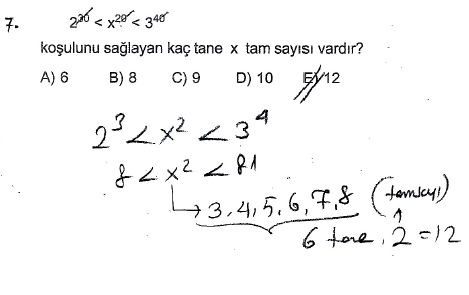 7. 2³⁰ < x²⁰ < 3⁴⁰
koşulunu sağlayan kaç tane x tam sayısı vardır?
A) 6 B) 8 C) 9 D) 10 E) 12
2³ < x² < 3⁴
8 < x² < 81
3, 4, 5, 6, 7, 8 (tamsayı)
6 tane . 2 = 12